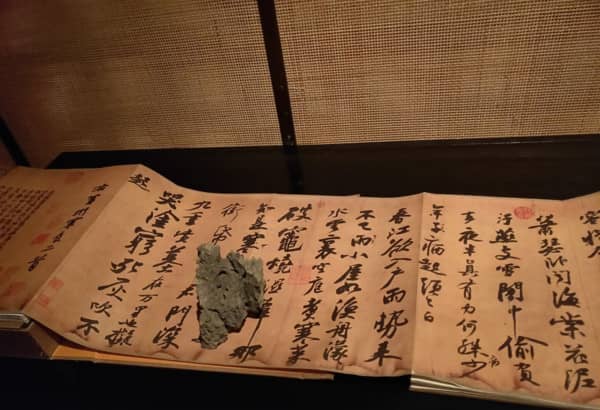 蕭瑟卧聞海棠花泥
汙燕支雪闇中偷負
去夜半真有力何殊少
病
年子病起頭已白
春江欲入戶雨勢來
不已雨小屋如漁舟濛
水雲裏空庖煮寒菜
破竈燒濕葦那
知是寒
銜帋
君門深
九重墳墓在万里也擬
哭塗窮死灰吹不
起
右黃州寒食二首